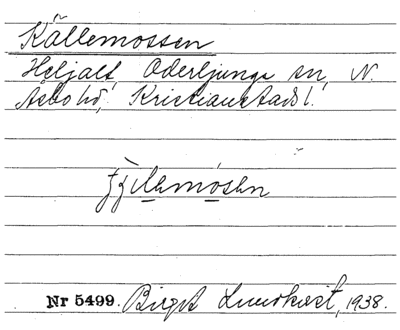 Källemossen
Heljalt, Oderljunga sn, N.
Åsbo hd, Kristianstads l.
Nr 5499. Birgit Lundkvist, 1938.